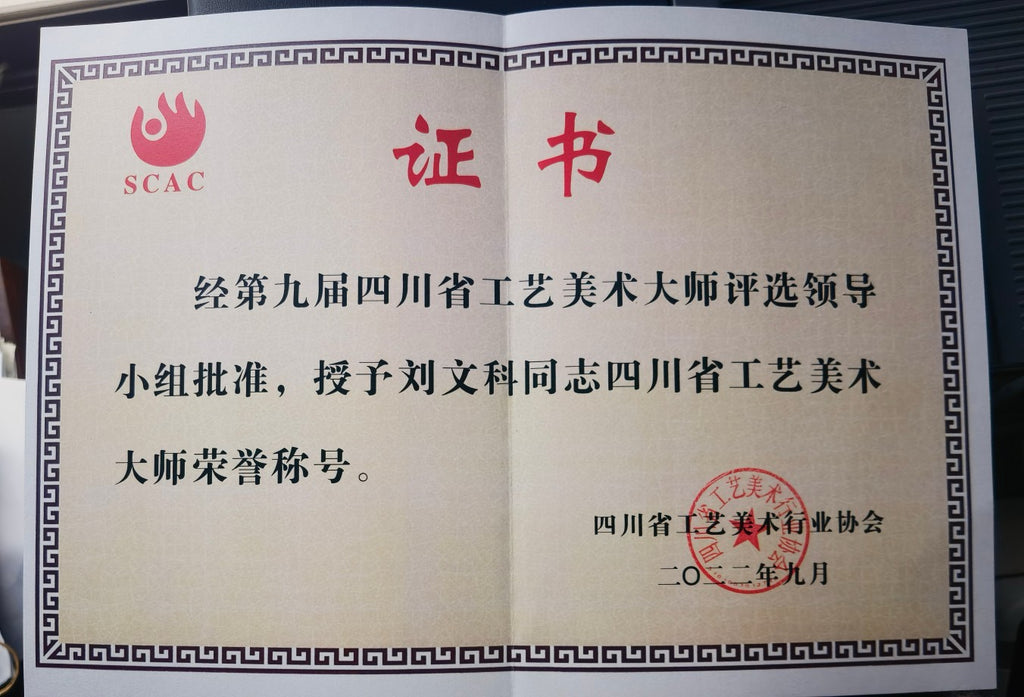 SCAC
证书
经第九届四川省工艺美术大师评选领导
小组批准，授予刘文科同志四川省工艺美术
大师荣誉称号。
四川省工艺美术行业协会
二〇二二年九月
四川省工艺美术行业协会